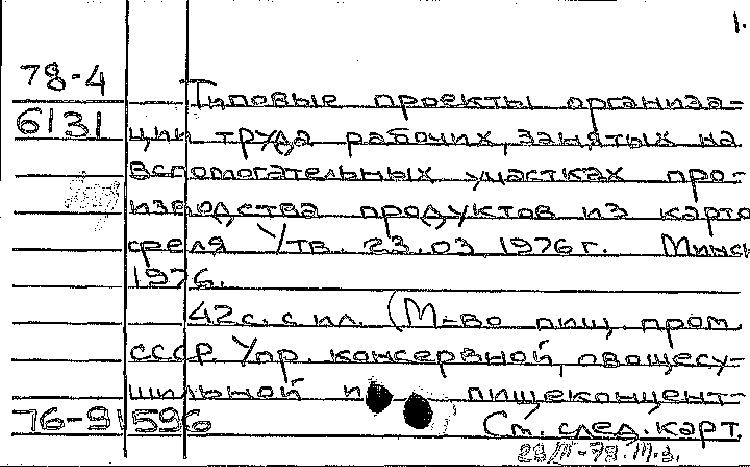 1.
78-4
Типовые проекты организа-
6131
ции труда рабочих, занятых на
вспомогательных участках про-
изводства продуктов из карто
феля Утв. 23.03 1976г. Минск
1976.
42с. с ил. (М-во пищ. пром.
СССР. Упр. консервной, овощесу-
шильной и пищеконцент-
76-91596
См. след. карт.